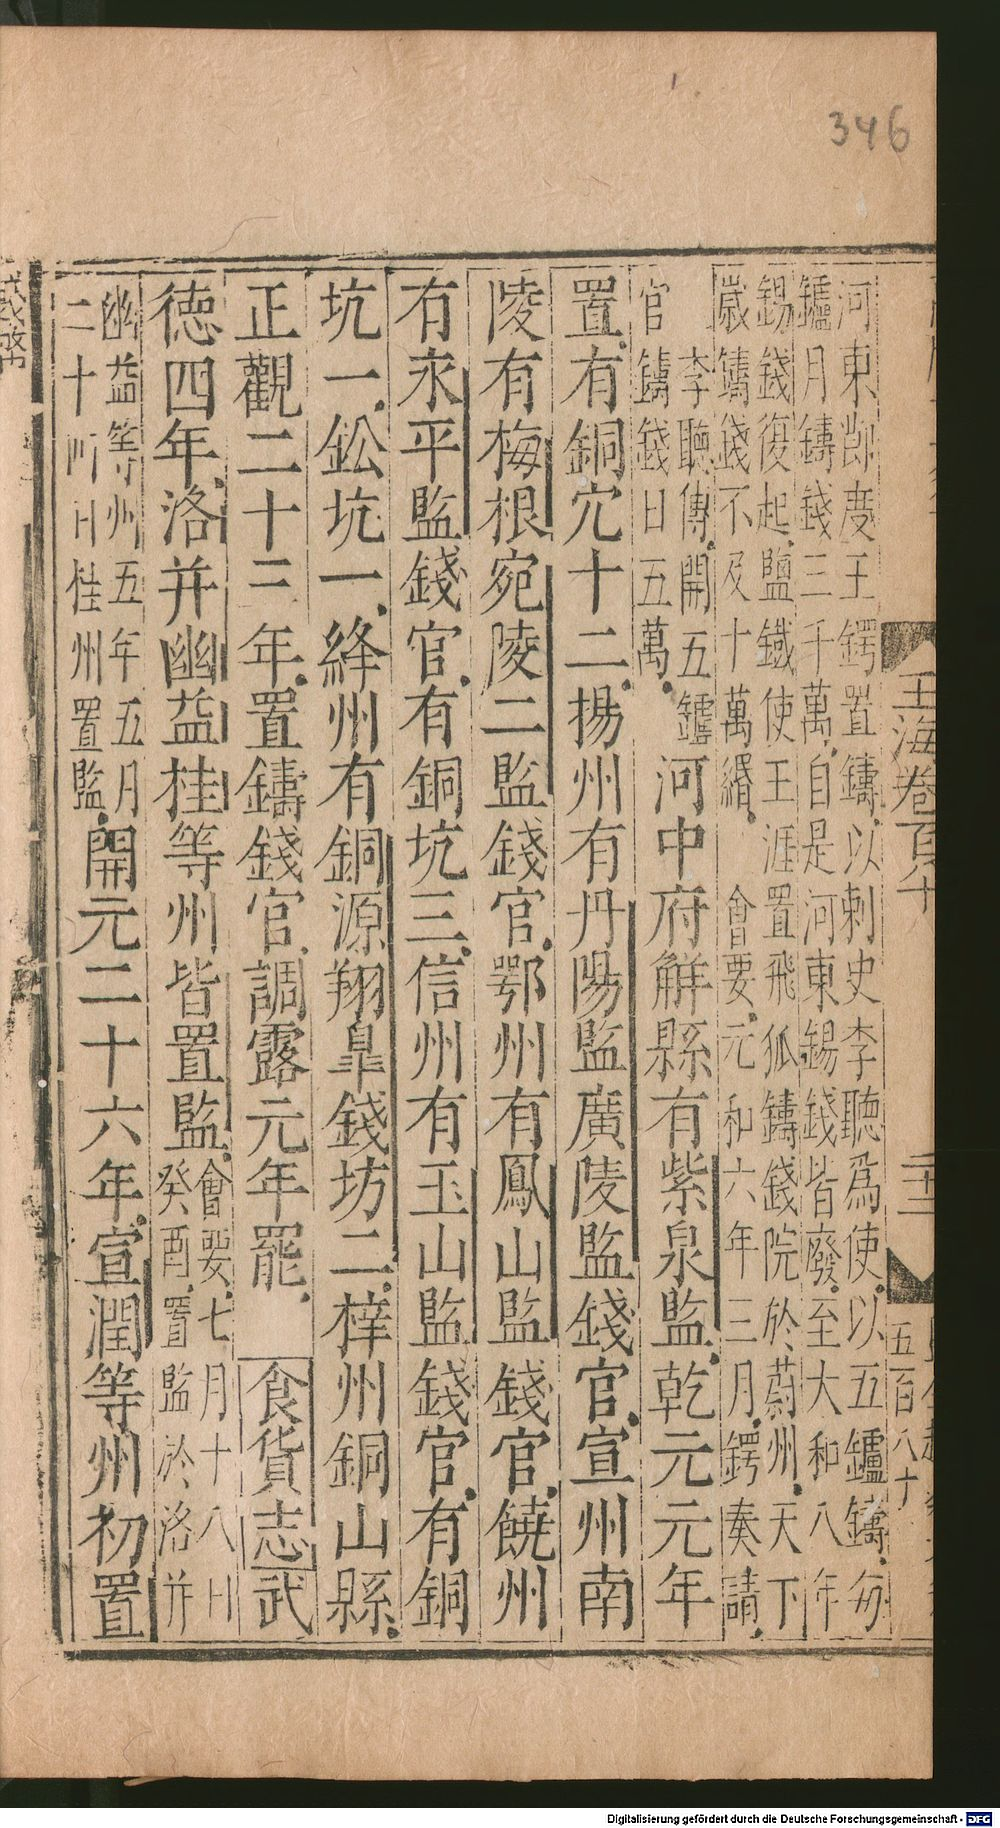 346
玉海卷百八十
二十二
五百八十
河東節度王鍔置鑄以刺史李聽爲使以五鑪鑄每
鑪月鑄錢三千萬自是河東錫錢皆廢至大和八年
錫錢復起鹽鐵使王涯置飛狐鑄錢院於蔚州天下
歳鑄錢不及十萬緡 會要元和六年三月鍔奏請
李聽傳開五鑪
官鑄錢日五萬
河中府解縣有紫泉監乾元元年
置有銅穴十二揚州有丹陽監廣陵監錢官宣州南
陵有梅根宛陵二監錢官鄂州有鳳山監錢官饒州
有永平監錢官有銅坑三信州有玉山監錢官有銅
坑一鈆坑一絳州有銅源翔臯錢坊二梓州銅山縣
正觀二十三年置鑄錢官調露元年罷 食貨志武
德四年洛并幽益桂等州皆置監
會要七月十八日
癸酉置監於洛并
幽益等州五年五月
二十 日桂州置監
開元二十六年宣潤等州初置
Digitalisierung gefördert durch die Deutsche Forschungsgemeinschaft - DFG